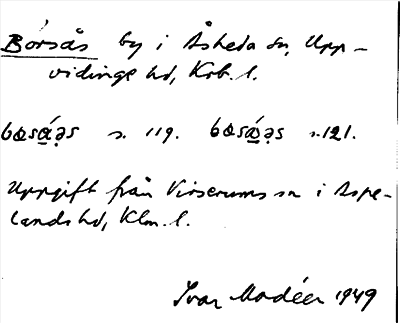 Börsås by i Åsheda sn, Upp-
vidinge hd, Krb. l.
s. 119. s. 121.
Uppgift från Virserums sn i Aspe-
lands hd, Klm. l.
Ivar Modéer 1949